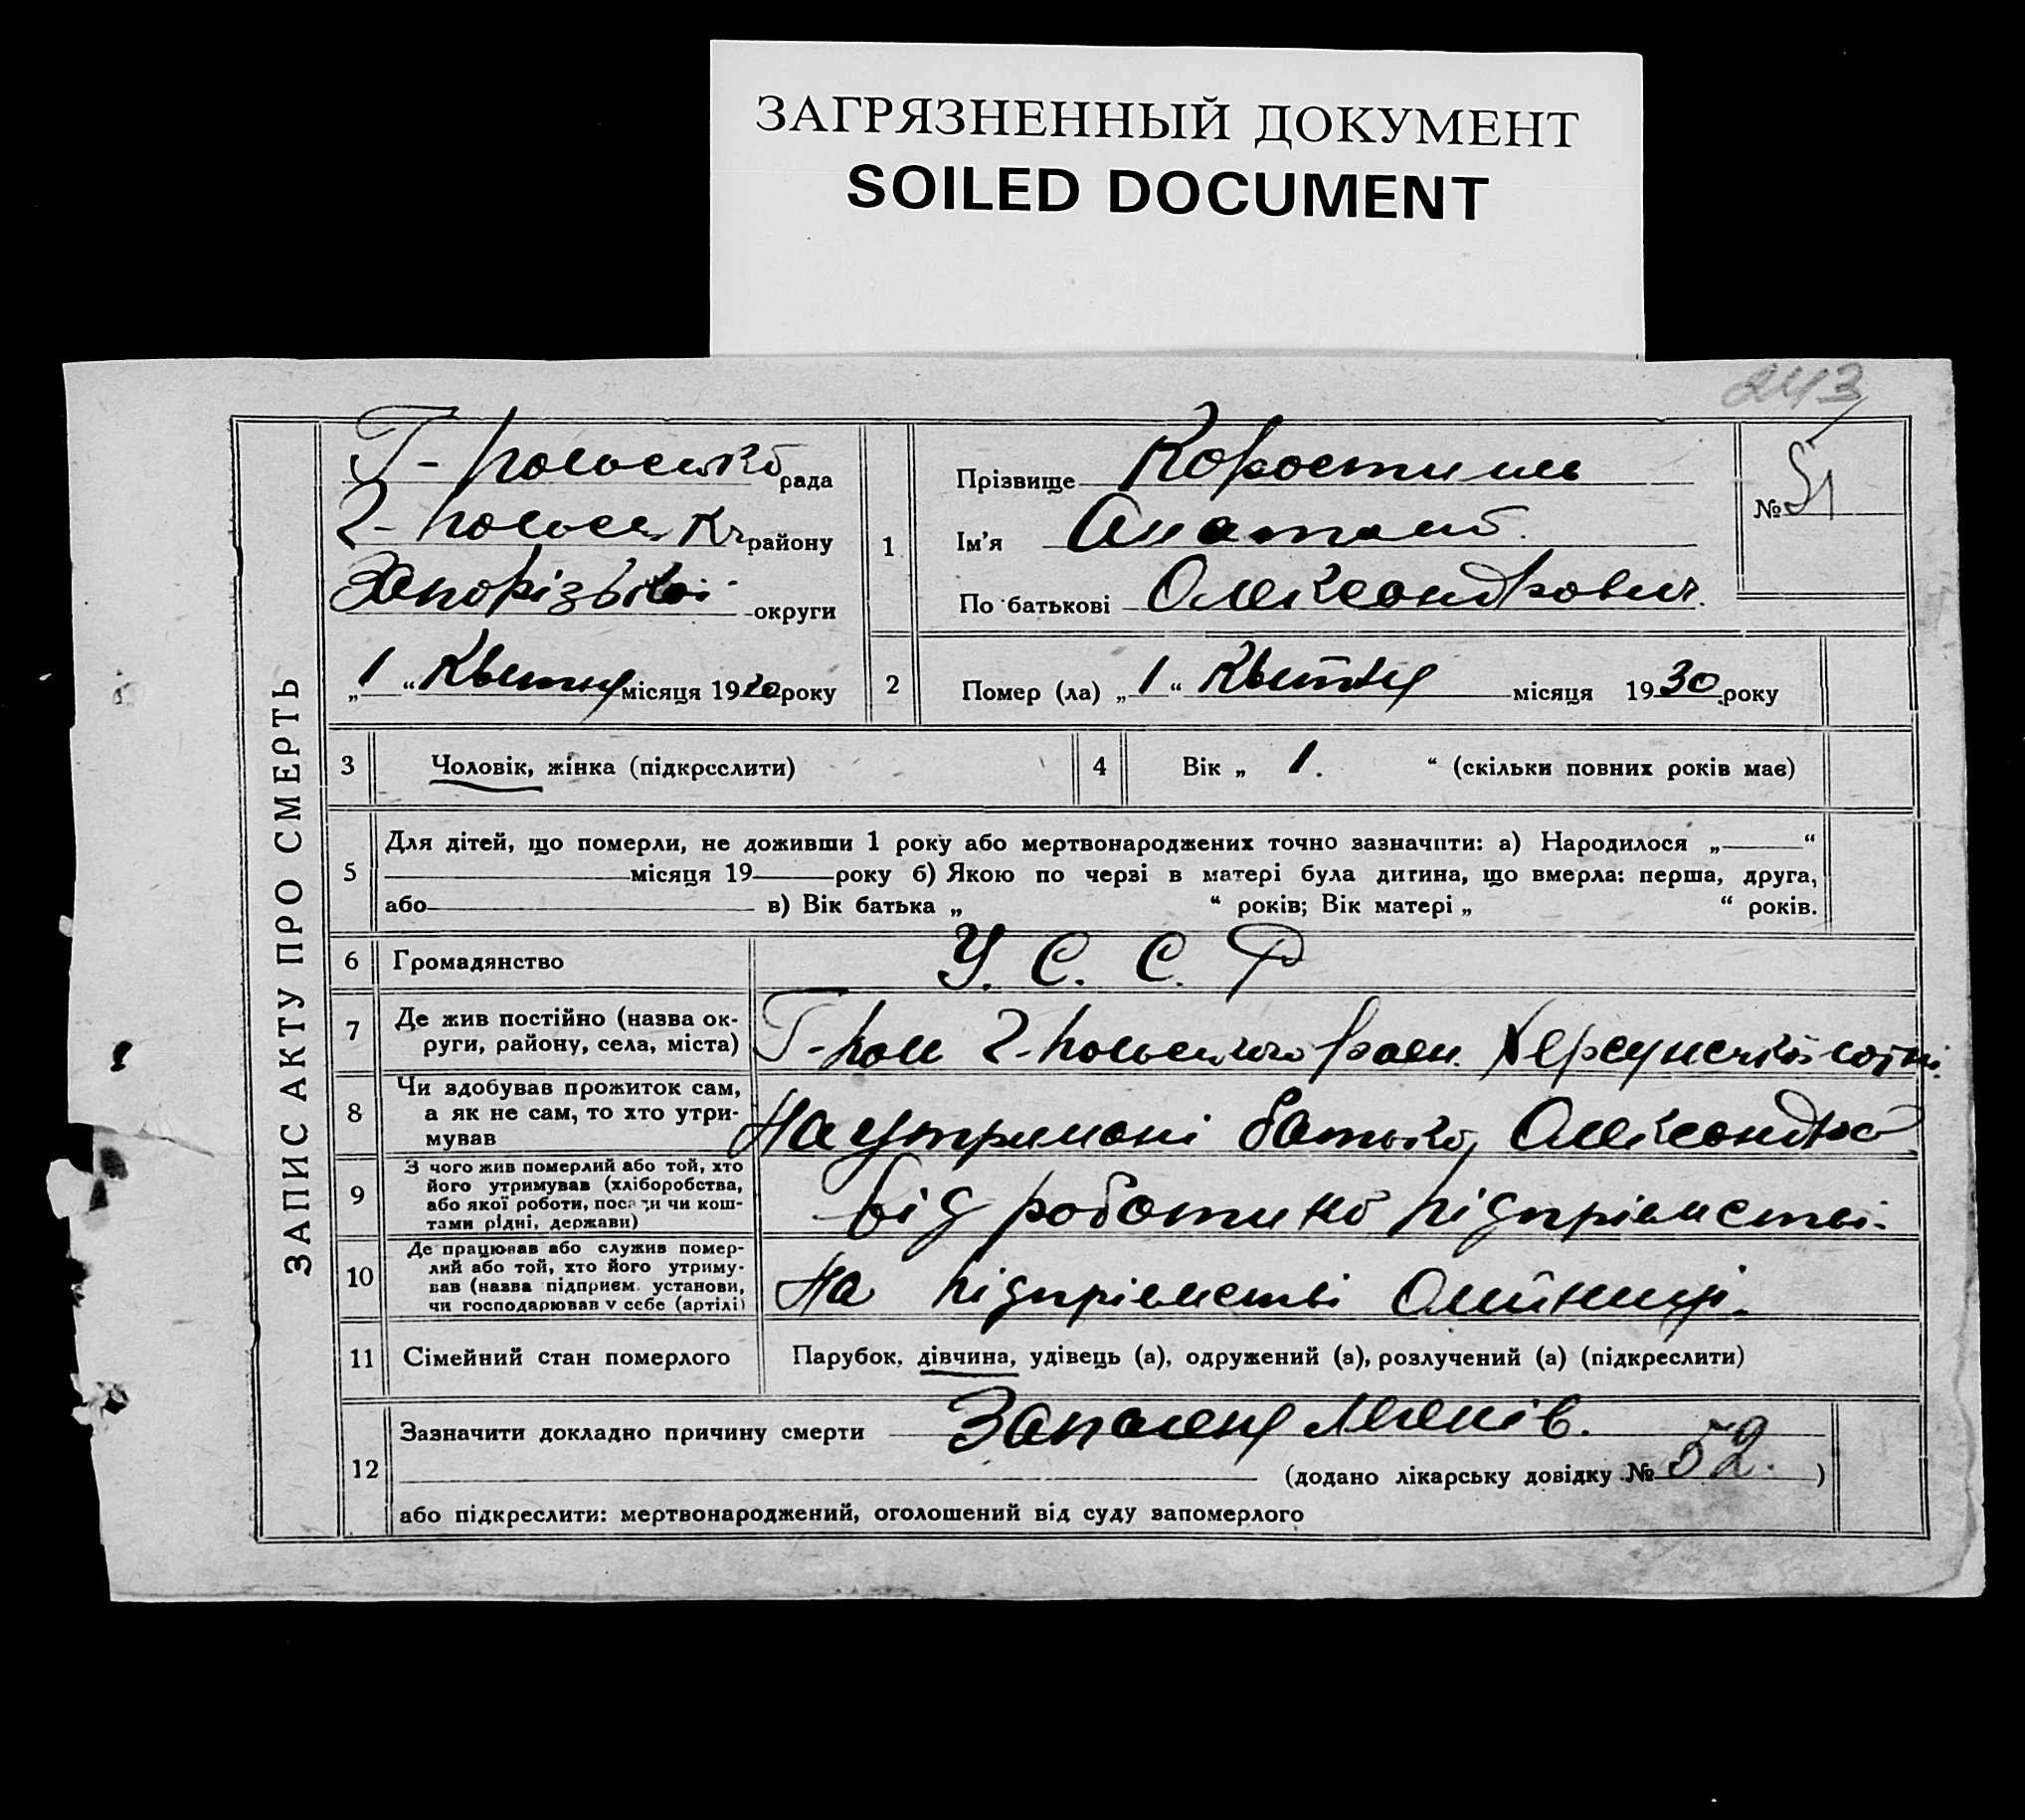 ЗАГРЯЗНЕННЫЙ ДОКУМЕНТ
SOILED DOCUMENT
243
ЗАПИС АКТУ ПРО СМЕРТЬ
Г-Польська рада
Г-Польськ району
Запорізької округи
„1“ Квітня місяця 1930 року
1
Прізвище Коростиль
Ім'я Анатолій
По батькові Олександрович
№ 51
2
Помер (ла) „1“ Квітня місяця 1930 року
3 Чоловік, жінка (підкреслити)
4 Вік „ 1. “ (скільки повних років має)
5 Для дітей, що померли, не доживши 1 року або мертвонароджених точно зазначити: а) Народилося „ “
місяця 19 року б) Якою по черзі в матері була дитина, що вмерла: перша, друга,
або в) Вік батька „ “ років; Вік матері „ “ років.
6 Громадянство У. С. С. Р
7 Де жив постійно (назва округи, району, села, міста) Г-Поле Г-Польського район. Херсунської сотні.
8 Чи здобував прожиток сам, а як не сам, то хто утримував На утримані батька Олександра
9 З чого жив померлий або той, хто його утримував (хліборобства, або якої роботи, посади чи коштами рідні, держави) від роботи на підпріємстві.
10 Де працював або служив померлий або той, хто його утримував (назва підприєм. установи, чи господарював у себе (артілі) На підпріємстві Олійниці.
11 Сімейний стан померлого Парубок, дівчина, удівець (а), одружений (а), розлучений (а) (підкреслити)
12 Зазначити докладно причину смерти Запаленя легенів.
(додано лікарську довідку № 52. )
або підкреслити: мертвонароджений, оголошений від суду запомерлого